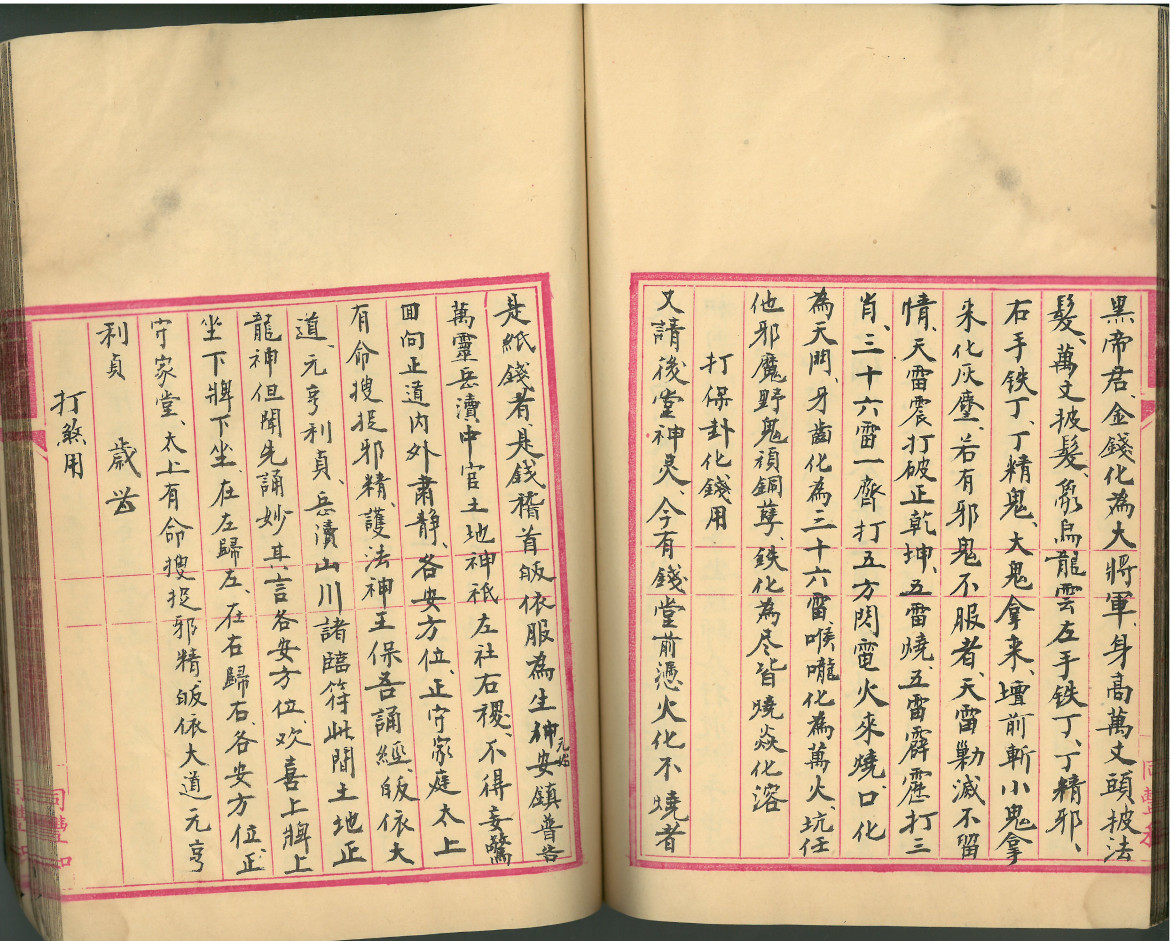 黑帝君、金錢化為大將軍、身高萬丈頭披法
髮、萬丈披髮、象烏龍雲左手铁丁、丁精邪、
右手铁丁、丁精鬼、大鬼拿来、壇前斬小鬼拿
来化灰塵、若有邪鬼不服者、天雷勦滅不留
情、天雷震打破正乾坤、五雷燒、五雷霹靂打三
肖、三十六雷一齊打五方閃電火来燒、口化
為天門、牙齒化為三十六雷、喉嚨化為萬火、坑任
他邪魔野鬼頑銅孽、鉄化為尽皆燒焱化溶
打保卦化錢用
又請後堂神灵、今有錢堂前憑火化不燒者
是紙錢者、是錢稽首皈依服為生神安鎮普告
元始
萬靈岳瀆、中官土地神祇左社右稷、不得妄驚
囬向正道内外肅静、各安方位、正守家庭太上
有命搜捉邪精、護法神王保吾誦經、皈依大
道、元亨利貞、岳瀆山川諸臨符此間土地正
龍神但聞先誦妙其言各安方位、欢喜上牌上
坐下牌下坐、在左歸左、在右歸右、各安方位正
守家堂、太上有命搜捉邪精、皈依大道元亨
利貞
打煞用
同豐和